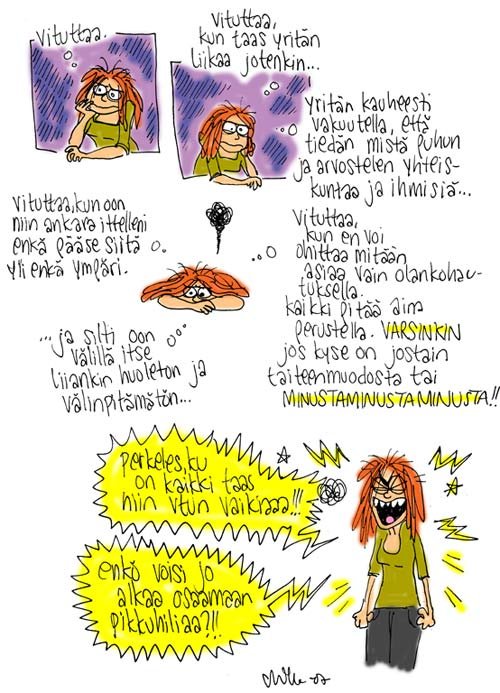 Vituttaa.
Vituttaa,
kun taas yritän
liikaa jotenkin...
yritän kauheesti
vakuutella, että
tiedän mistä puhun
ja arvostelen yhteis-
kuntaa ja ihmisiä...
Vituttaa, kun oon
niin ankara ittelleni
enkä pääse siitä
yli enkä ympäri.
Vituttaa,
kun en voi
ohittaa mitään
asiaa vain olankohau-
tuksella.
kaikki pitää aina
perustella. VARSINKIN
jos kyse on jostain
taiteenmuodosta tai
MINUSTAMINUSTAMINUSTA!!
...ja silti oon
välillä itse
liiankin huoleton ja
välinpitämätön...
perkeles, ku
on kaikki taas
niin vtun vaikiaaa!!!
enkö voisi jo
alkaa osaamaan
pikkuhiliaa?!!